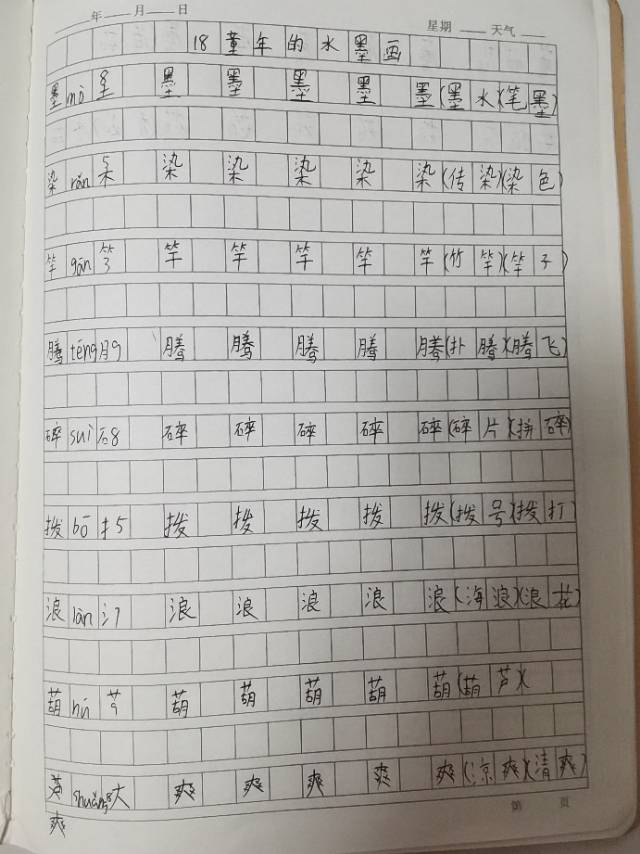 年 月 日 星期 天气
18 童年的水墨画
墨 mò 墨 墨 墨 墨 墨 (墨水)(笔墨)
染 rǎn 5木 染 染 染 染 染 (传染)(染色)
竿 gān 竹3 竿 竿 竿 竿 竿 (竹竿)(竿子)
腾 téng 月9 腾 腾 腾 腾 腾 (扑腾)(腾飞)
碎 suì 石8 碎 碎 碎 碎 碎 (碎片)(拼碎)
拨 bō 扌5 拨 拨 拨 拨 拨 (拨号)(拨打)
浪 làn 氵7 浪 浪 浪 浪 浪 (海浪)(浪花)
葫 hú 艹9 葫 葫 葫 葫 葫 (葫芦)(
shuǎng 大 爽 爽 爽 爽 爽 (凉爽)(清爽)
爽
第 页